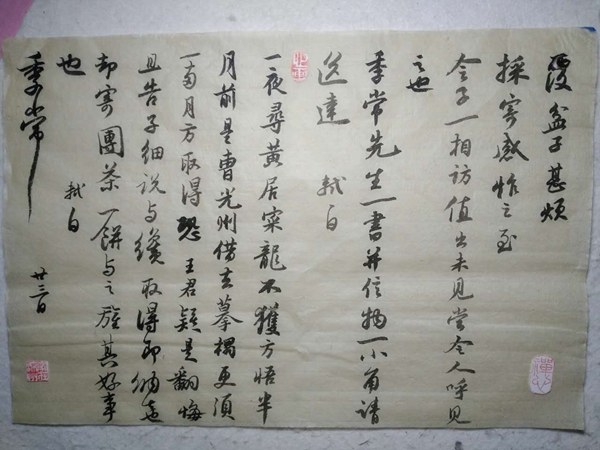 覆盆子甚煩
採寄感怍之至
令子一相訪值出未見當令人呼見
之也
季常先生一書并信物一小角請
送達 軾白
一夜尋黃居寀龍不獲方悟半
月前是曹光州借去摹搨更須
一兩月方取得恐王君疑是翻悔
且告子細說与纔取得即納去也
却寄團茶一餅与之旌其好事
也 軾白
季常 廿三日